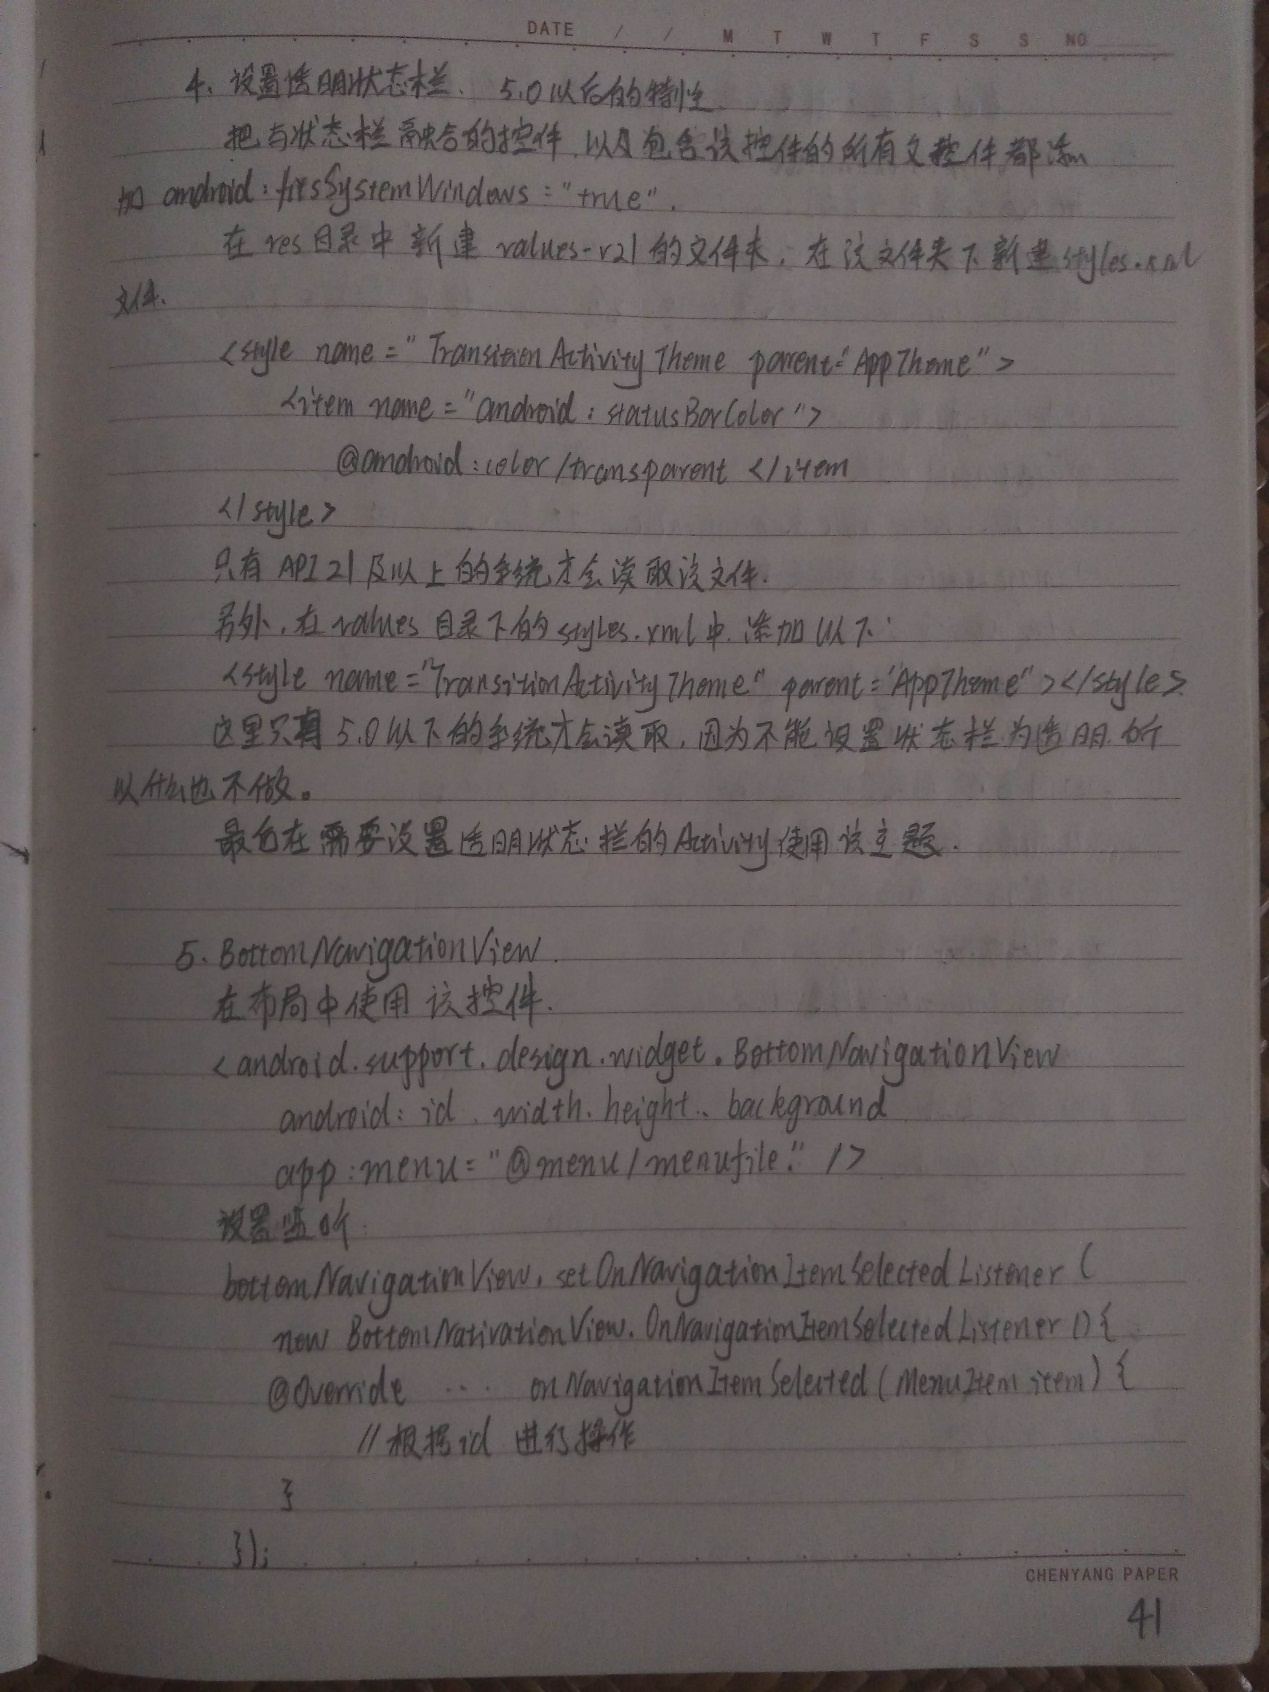 DATE / / M T W T F S S NO
4. 设置透明状态栏. 5.0以后的特性.
把与状态栏融合的控件,以及包含该控件的所有父控件都添
加 android:fitsSystemWindows="true".
在res目录中新建values-v21的文件夹,在该文件夹下新建styles.xml
文件.
<style name="TransitionActivityTheme parent="AppTheme">
<item name="android:statusBarColor">
@android:color/transparent </item
</style>
只有API21及以上的系统才会读取该文件.
另外,在values目录下的styles.xml中,添加以下:
<style name="TransitionActivityTheme" parent="AppTheme"></style>
这里只有5.0以下的系统才会读取,因为不能设置状态栏为透明,所
以什么也不做。
最后在需要设置透明状态栏的Activity使用该主题.
5. BottomNavigationView.
在布局中使用该控件.
<android.support.design.widget.BottomNavigationView
android:id.width.height.. background
app:menu="@menu/menufile." />
设置监听.
bottomNavigationView.setOnNavigationItemSelectedListener(
new BottomNativationView.OnNavigationItemSelectedListener(){
@Override ... onNavigationItemSelected(MenuItem item){
//根据id 进行操作
}
});
CHENYANG PAPER
41